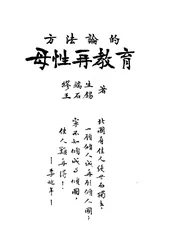 方法論的
母性再教育
繆端生
王石錫 著
北國有佳人絕世而獨立,
一顧傾人城再顧傾人國;
寧不知傾城與傾國,
佳人難再得!
—李延年—